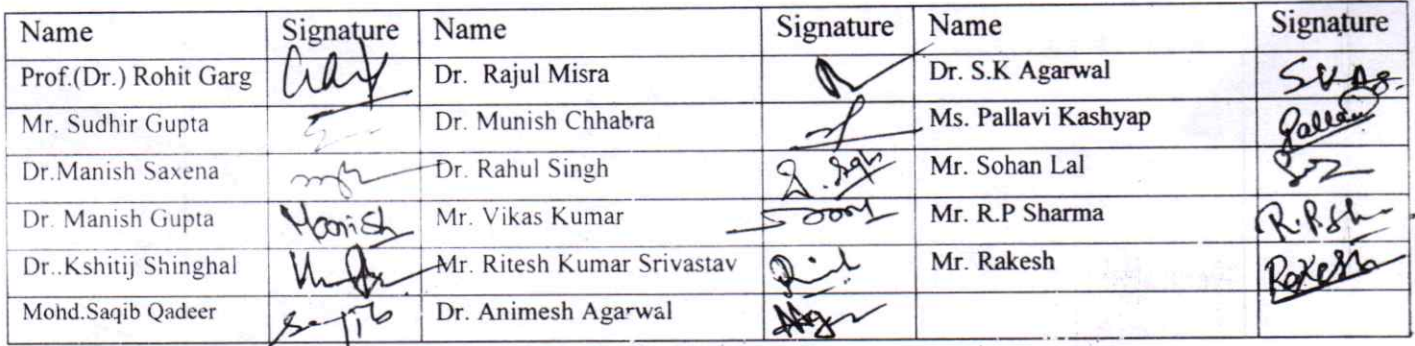 Name Signature Name Signature Name Signature
Prof.(Dr.) Rohit Garg Garg Dr. Rajul Misra Dr. S.K Agarwal S K Ag.
Mr. Sudhir Gupta Dr. Munish Chhabra Ms. Pallavi Kashyap Pallavi
Dr.Manish Saxena Dr. Rahul Singh R. Sgh Mr. Sohan Lal
Dr. Manish Gupta Manish Mr. Vikas Kumar Mr. R.P Sharma R.P.Sh
Dr..Kshitij Shinghal Mr. Ritesh Kumar Srivastav Mr. Rakesh Rakesh
Mohd.Saqib Qadeer Saqib Dr. Animesh Agarwal